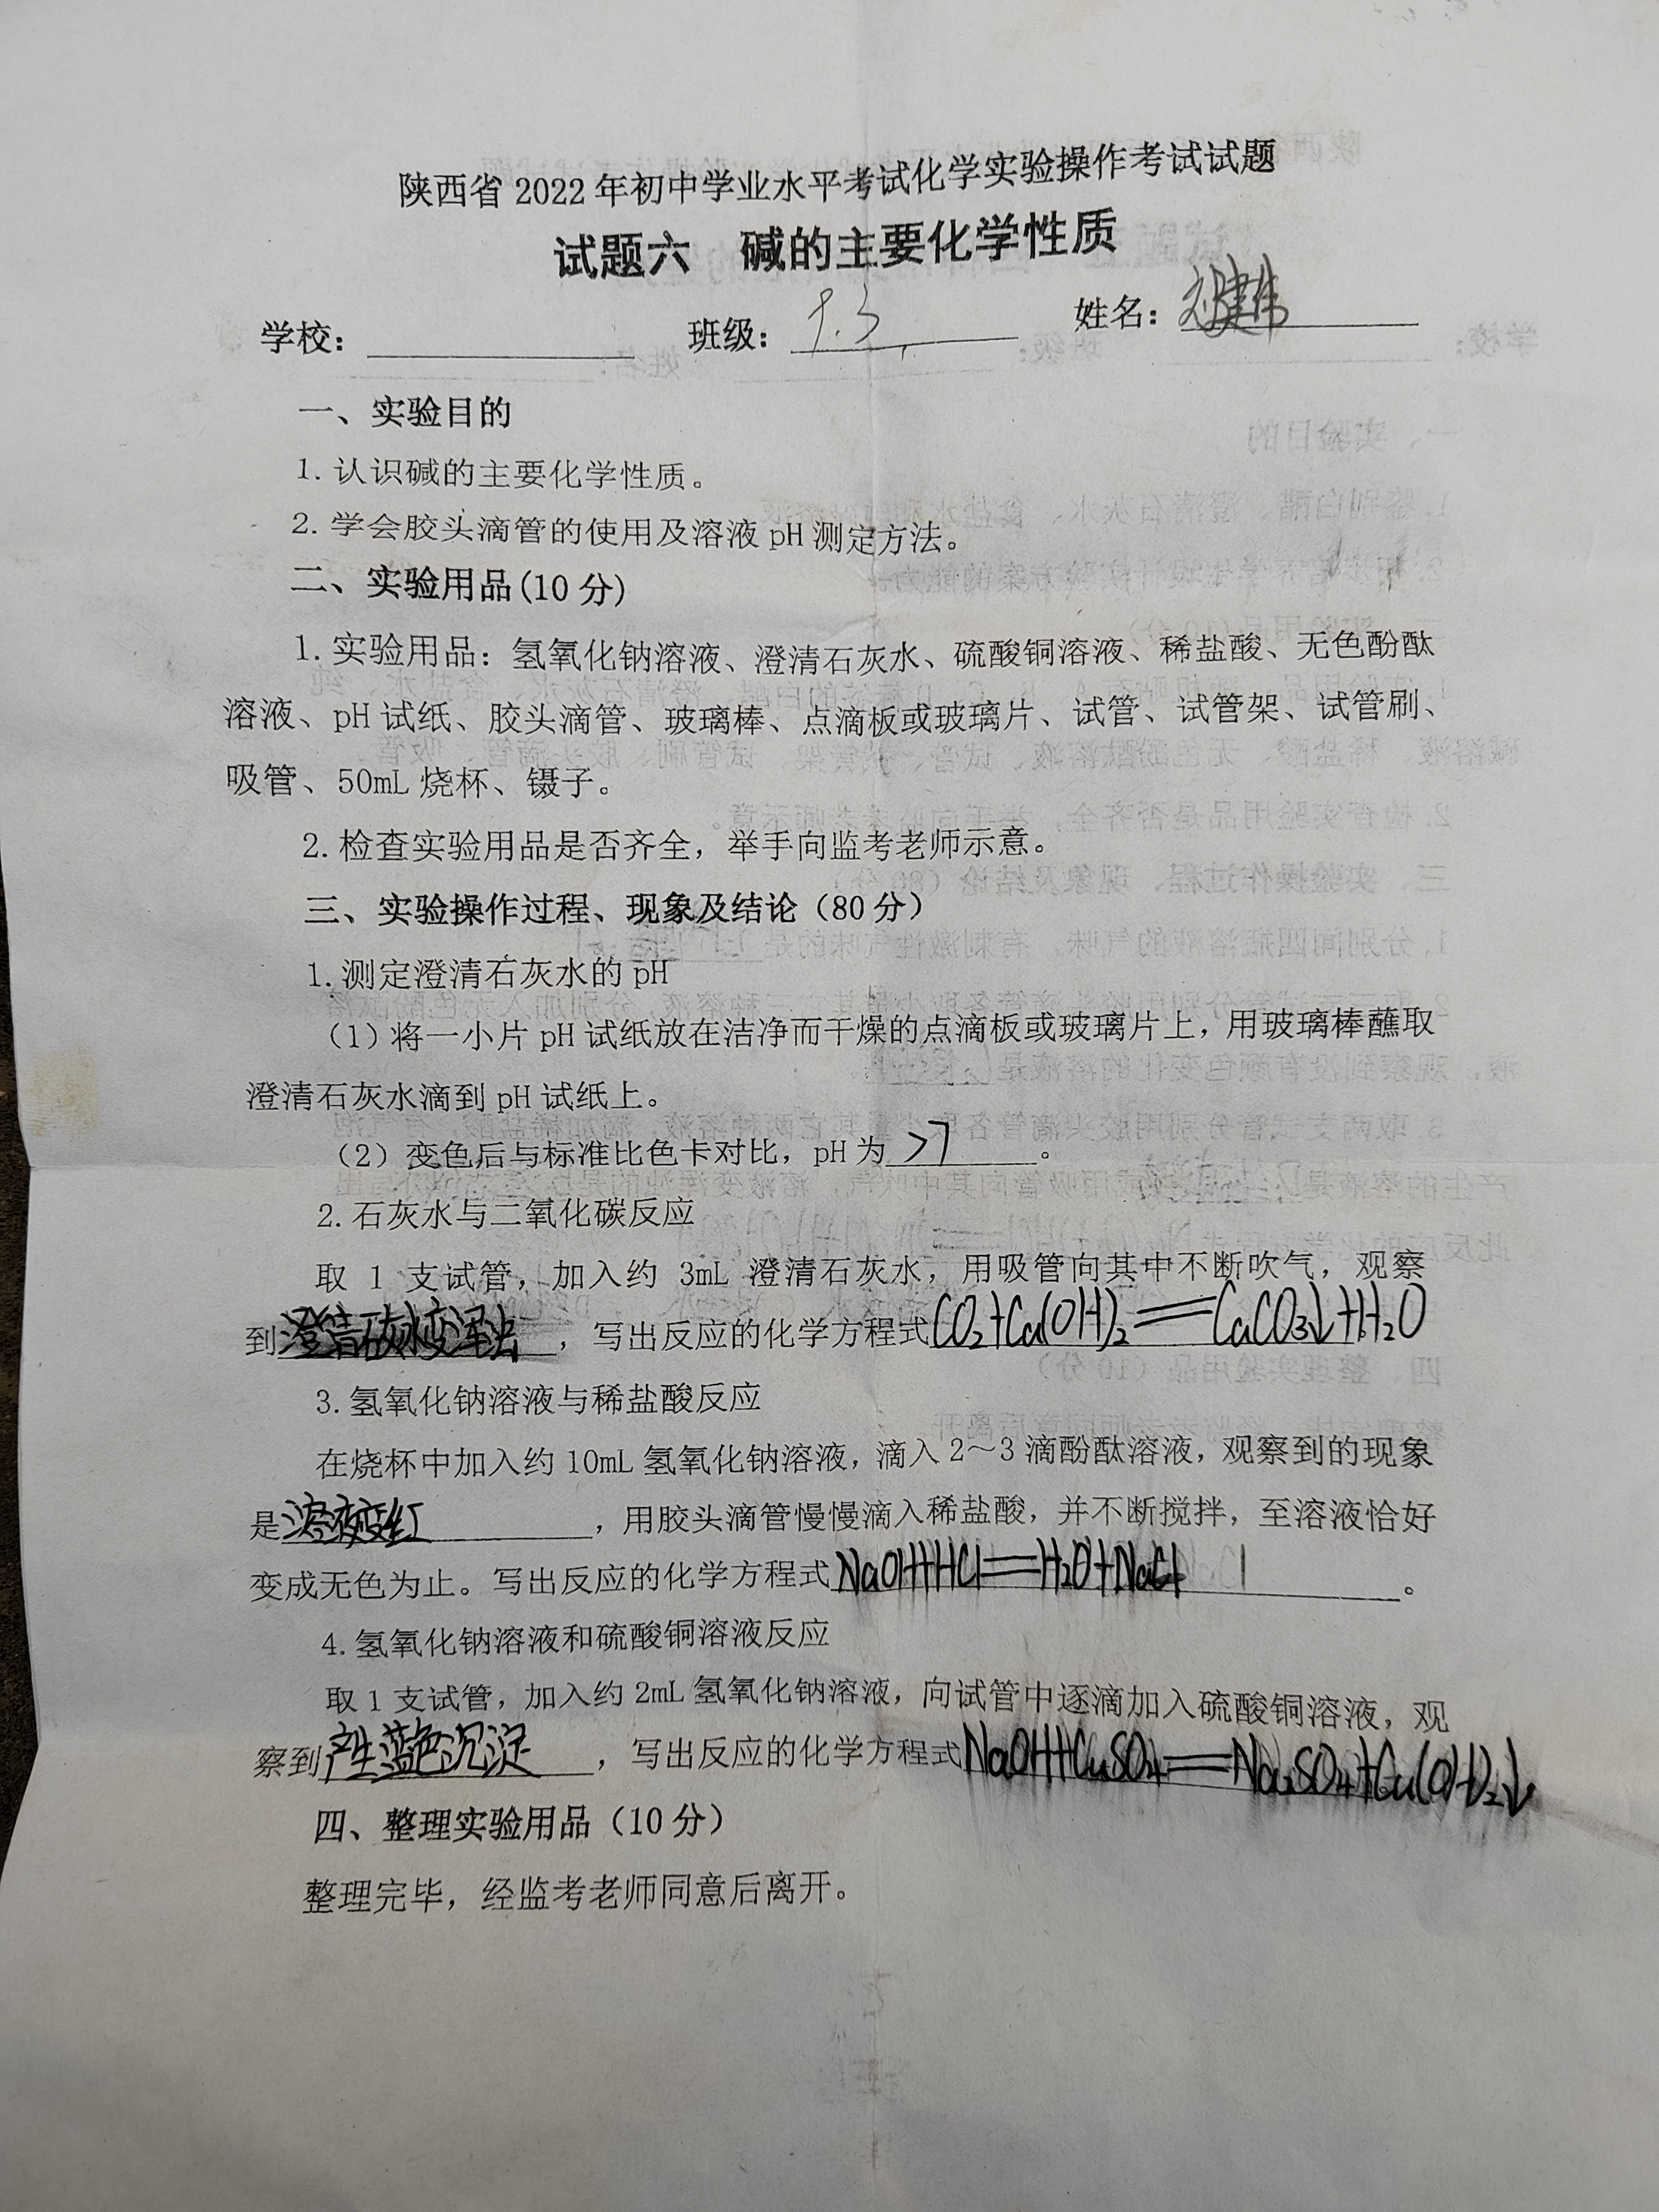 陕西省 2022 年初中学业水平考试化学实验操作考试试题
试题六 碱的主要化学性质
学校： 班级：9.3 姓名：
一、实验目的
1. 认识碱的主要化学性质。
2. 学会胶头滴管的使用及溶液 pH 测定方法。
二、实验用品(10 分)
1. 实验用品：氢氧化钠溶液、澄清石灰水、硫酸铜溶液、稀盐酸、无色酚酞
溶液、pH 试纸、胶头滴管、玻璃棒、点滴板或玻璃片、试管、试管架、试管刷、
吸管、50mL 烧杯、镊子。
2. 检查实验用品是否齐全，举手向监考老师示意。
三、实验操作过程、现象及结论（80 分）
1. 测定澄清石灰水的 pH
（1）将一小片 pH 试纸放在洁净而干燥的点滴板或玻璃片上，用玻璃棒蘸取
澄清石灰水滴到 pH 试纸上。
（2）变色后与标准比色卡对比，pH 为 >7 。
2. 石灰水与二氧化碳反应
取 1 支试管，加入约 3mL 澄清石灰水，用吸管向其中不断吹气，观察
到澄清石灰水变浑浊，写出反应的化学方程式CO₂+Ca(OH)₂══CaCO₃↓+H₂O
3. 氢氧化钠溶液与稀盐酸反应
在烧杯中加入约 10mL 氢氧化钠溶液，滴入 2～3 滴酚酞溶液，观察到的现象
是溶液变红，用胶头滴管慢慢滴入稀盐酸，并不断搅拌，至溶液恰好
变成无色为止。写出反应的化学方程式NaOH+HCl══H₂O+NaCl。
4. 氢氧化钠溶液和硫酸铜溶液反应
取 1 支试管，加入约 2mL 氢氧化钠溶液，向试管中逐滴加入硫酸铜溶液，观
察到产生蓝色沉淀，写出反应的化学方程式NaOH+CuSO₄══Na₂SO₄+Cu(OH)₂↓
四、整理实验用品（10 分）
整理完毕，经监考老师同意后离开。